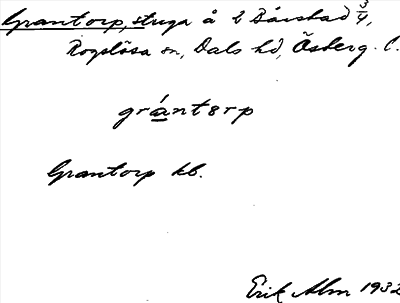 Grantorp, stuga å l Bårstad 3/4,
Rogslösa sn, Dals hd, Ösberg. l.
grántorp
Grantorp kb.
Erik Alm 1932